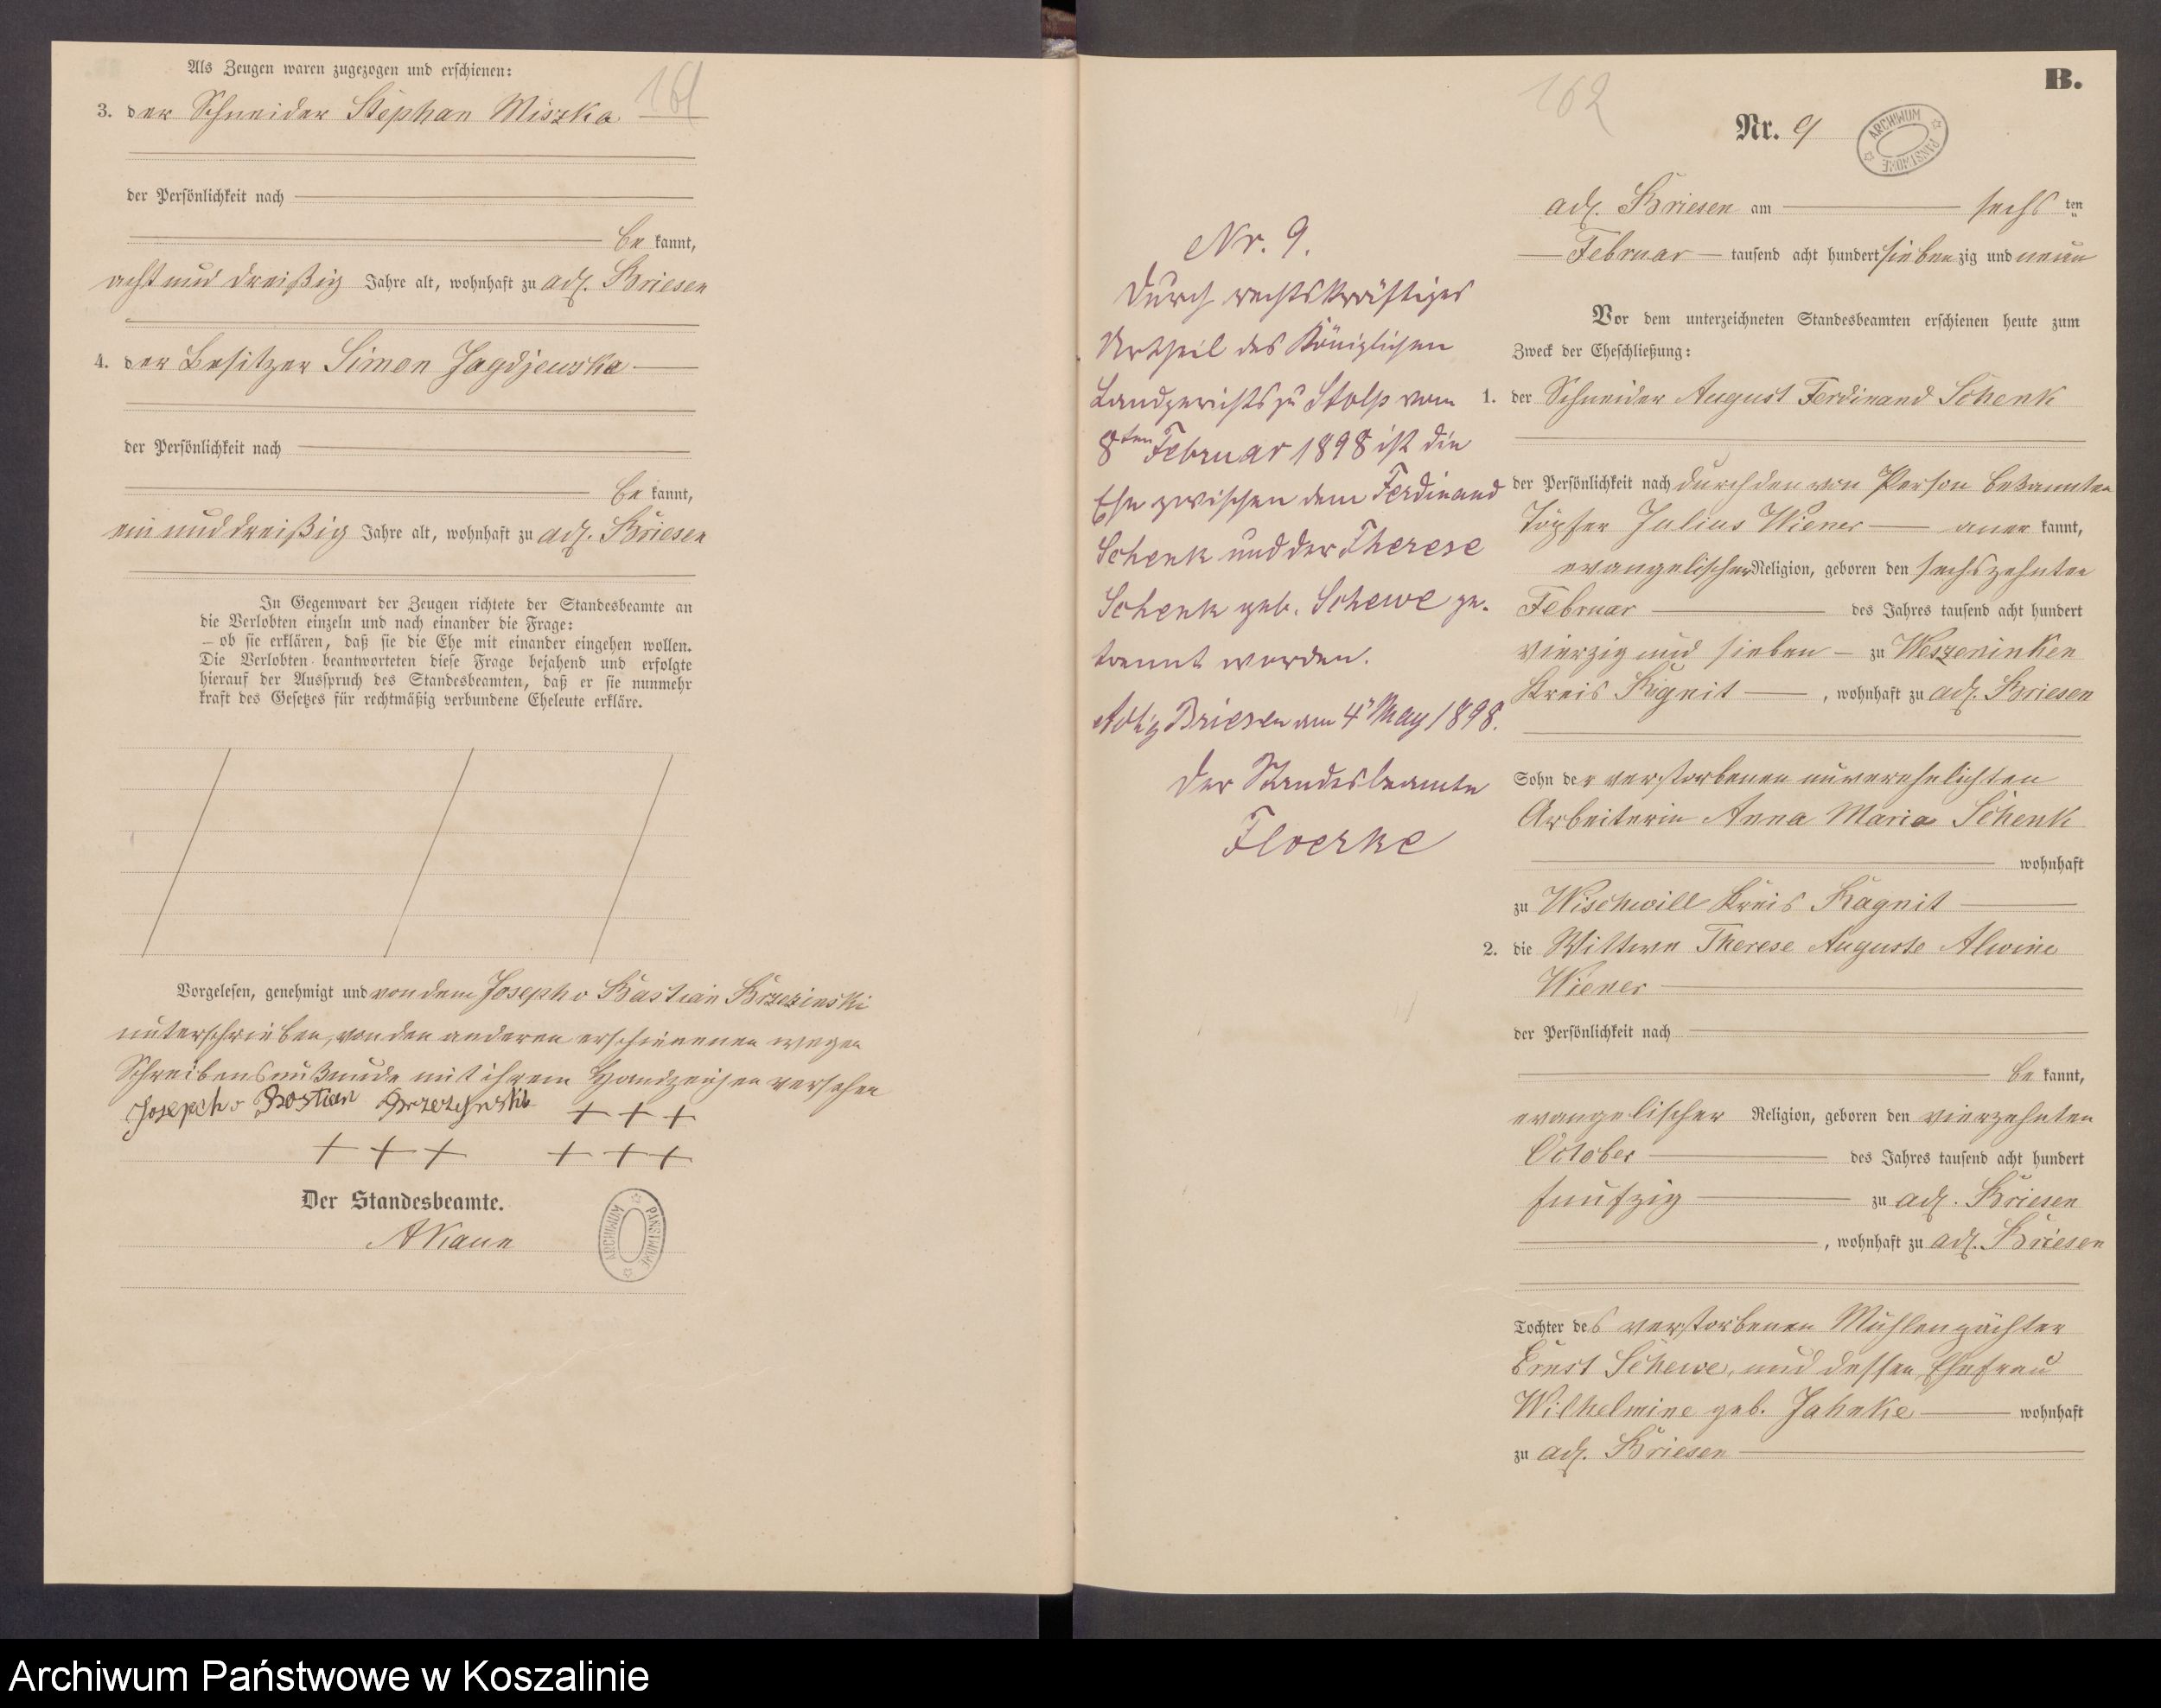 Als Zeugen waren zugezogen und erschienen:
161
3. der Schneider Stephan Miszka
der Persönlichkeit nach
be kannt,
acht und dreißig Jahre alt, wohnhaft zu adl. Briesen
4. der Besitzer Simon Jagdjewska
der Persönlichkeit nach
be kannt,
ein und dreißig Jahre alt, wohnhaft zu adl. Briesen
In Gegenwart der Zeugen richtete der Standesbeamte an
die Verlobten einzeln und nach einander die Frage:
— ob sie erklären, daß sie die Ehe mit einander eingehen wollen.
Die Verlobten beantworteten diese Frage bejahend und erfolgte
hierauf der Ausspruch des Standesbeamten, daß er sie nunmehr
kraft des Gesetzes für rechtmäßig verbundene Eheleute erkläre.
Vorgelesen, genehmigt und von dem Joseph v Bastian Brzezinski
unterschrieben, von den anderen erschienenen wegen
Schreibensunkunde mit ihrem Handzeichen versehen
Josepch v Bostian Brzezynski + + +
+ + + + + +
Der Standesbeamte.
AKaun
ARCHIWUM PAŃSTWOWE
162
B.
Nr. 9
ARCHIWUM PAŃSTWOWE
adl. Briesen am sechs ten
Februar tausend acht hundert siebenzig und neun
Vor dem unterzeichneten Standesbeamten erschienen heute zum
Zweck der Eheschließung:
1. der Schneider August Ferdinand Schenk
der Persönlichkeit nach durch den von Person bekannten
Töpfer Julius Wiener aner kannt,
evangelischer Religion, geboren den sechszehnten
Februar des Jahres tausend acht hundert
vierzig und sieben zu Weszeninken
Kreis Ragnit, wohnhaft zu adl. Briesen
Sohn der verstorbenen unverehelichten
Arbeiterin Anna Maria Schenk
wohnhaft
zu Wischwill Kreis Ragnit
2. die Wittwe Therese Auguste Alwine
Wiener
der Persönlichkeit nach
be kannt,
evangelischer Religion, geboren den vierzehnten
October des Jahres tausend acht hundert
funfzig zu adl. Briesen
, wohnhaft zu adl. Briesen
Tochter des verstorbenen Mühlenpächter
Ernst Schewe, und dessen Ehefrau
Wilhelmine geb. Jahnke wohnhaft
zu adl. Briesen
Nr. 9.
Durch rechtskräftiges
Urtheil des Königlichen
Landgerichts zu Stolp vom
8ten Februar 1898 ist die
Ehe zwischen dem Ferdinand
Schenk und der Therese
Schenk geb. Schewe ge-
trennt worden.
Adlig Briesen am 4 May 1898.
Der Standesbeamte
Floerke
Archiwum Państwowe w Koszalinie